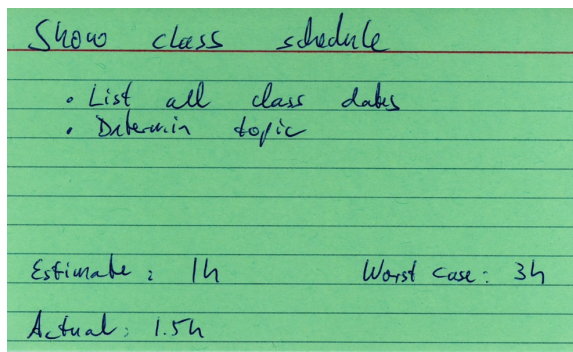 Show class schedule
• List all class dates
• Determin topic
Estimate: 1h Worst case: 3h
Actual: 1.5h